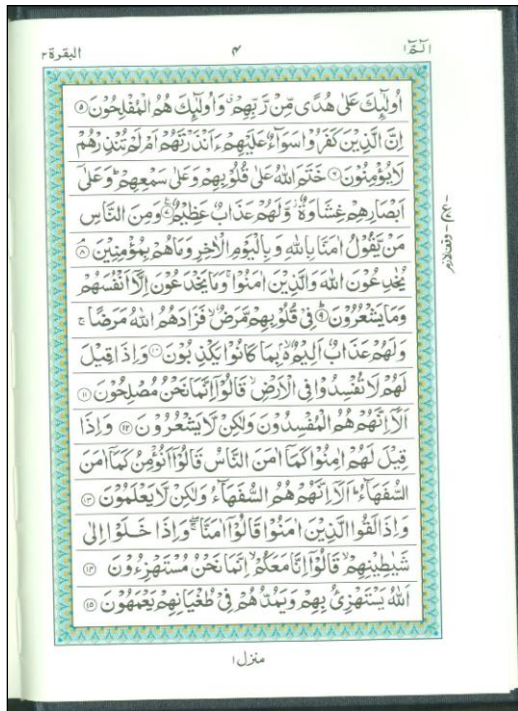 البقرة ۲
۴
الٓمّٓ ۱
اُولٰٓئِكَ عَلٰى هُدًى مِّنْ رَّبِّهِمْ ۙ وَاُولٰٓئِكَ هُمُ الْمُفْلِحُوْنَ ۝۵
اِنَّ الَّذِيْنَ كَفَرُوْا سَوَآءٌ عَلَيْهِمْ ءَاَنْذَرْتَهُمْ اَمْ لَمْ تُنْذِرْهُمْ
لَا يُؤْمِنُوْنَ ۝۶ خَتَمَ اللّٰهُ عَلٰى قُلُوْبِهِمْ وَعَلٰى سَمْعِهِمْ ؕ وَعَلٰٓى
اَبْصَارِهِمْ غِشَاوَةٌ ۫ وَّلَهُمْ عَذَابٌ عَظِيْمٌ ۝۷ وَمِنَ النَّاسِ
مَنْ يَّقُوْلُ اٰمَنَّا بِاللّٰهِ وَبِالْيَوْمِ الْاٰخِرِ وَمَا هُمْ بِمُؤْمِنِيْنَ ۘ ۝۸
يُخٰدِعُوْنَ اللّٰهَ وَالَّذِيْنَ اٰمَنُوْا ۚ وَمَا يَخْدَعُوْنَ اِلَّاۤ اَنْفُسَهُمْ
وَمَا يَشْعُرُوْنَ ؕ ۝۹ فِيْ قُلُوْبِهِمْ مَّرَضٌ ۙ فَزَادَهُمُ اللّٰهُ مَرَضًا ۚ
وَلَهُمْ عَذَابٌ اَلِيْمٌ ۢ ۙ بِمَا كَانُوْا يَكْذِبُوْنَ ۝۱۰ وَاِذَا قِيْلَ
لَهُمْ لَا تُفْسِدُوْا فِي الْاَرْضِ ۙ قَالُوْۤا اِنَّمَا نَحْنُ مُصْلِحُوْنَ ۝۱۱
اَلَاۤ اِنَّهُمْ هُمُ الْمُفْسِدُوْنَ وَلٰكِنْ لَّا يَشْعُرُوْنَ ۝۱۲ وَاِذَا
قِيْلَ لَهُمْ اٰمِنُوْا كَمَاۤ اٰمَنَ النَّاسُ قَالُوْۤا اَنُؤْمِنُ كَمَاۤ اٰمَنَ
السُّفَهَآءُ ؕ اَلَاۤ اِنَّهُمْ هُمُ السُّفَهَآءُ وَلٰكِنْ لَّا يَعْلَمُوْنَ ۝۱۳
وَاِذَا لَقُوا الَّذِيْنَ اٰمَنُوْا قَالُوْۤا اٰمَنَّا ۖۚ وَاِذَا خَلَوْا اِلٰى
شَيٰطِيْنِهِمْ ۙ قَالُوْۤا اِنَّا مَعَكُمْ ۙ اِنَّمَا نَحْنُ مُسْتَهْزِءُوْنَ ۝۱۴
اَللّٰهُ يَسْتَهْزِئُ بِهِمْ وَيَمُدُّهُمْ فِيْ طُغْيَانِهِمْ يَعْمَهُوْنَ ۝۱۵
منزل ۱